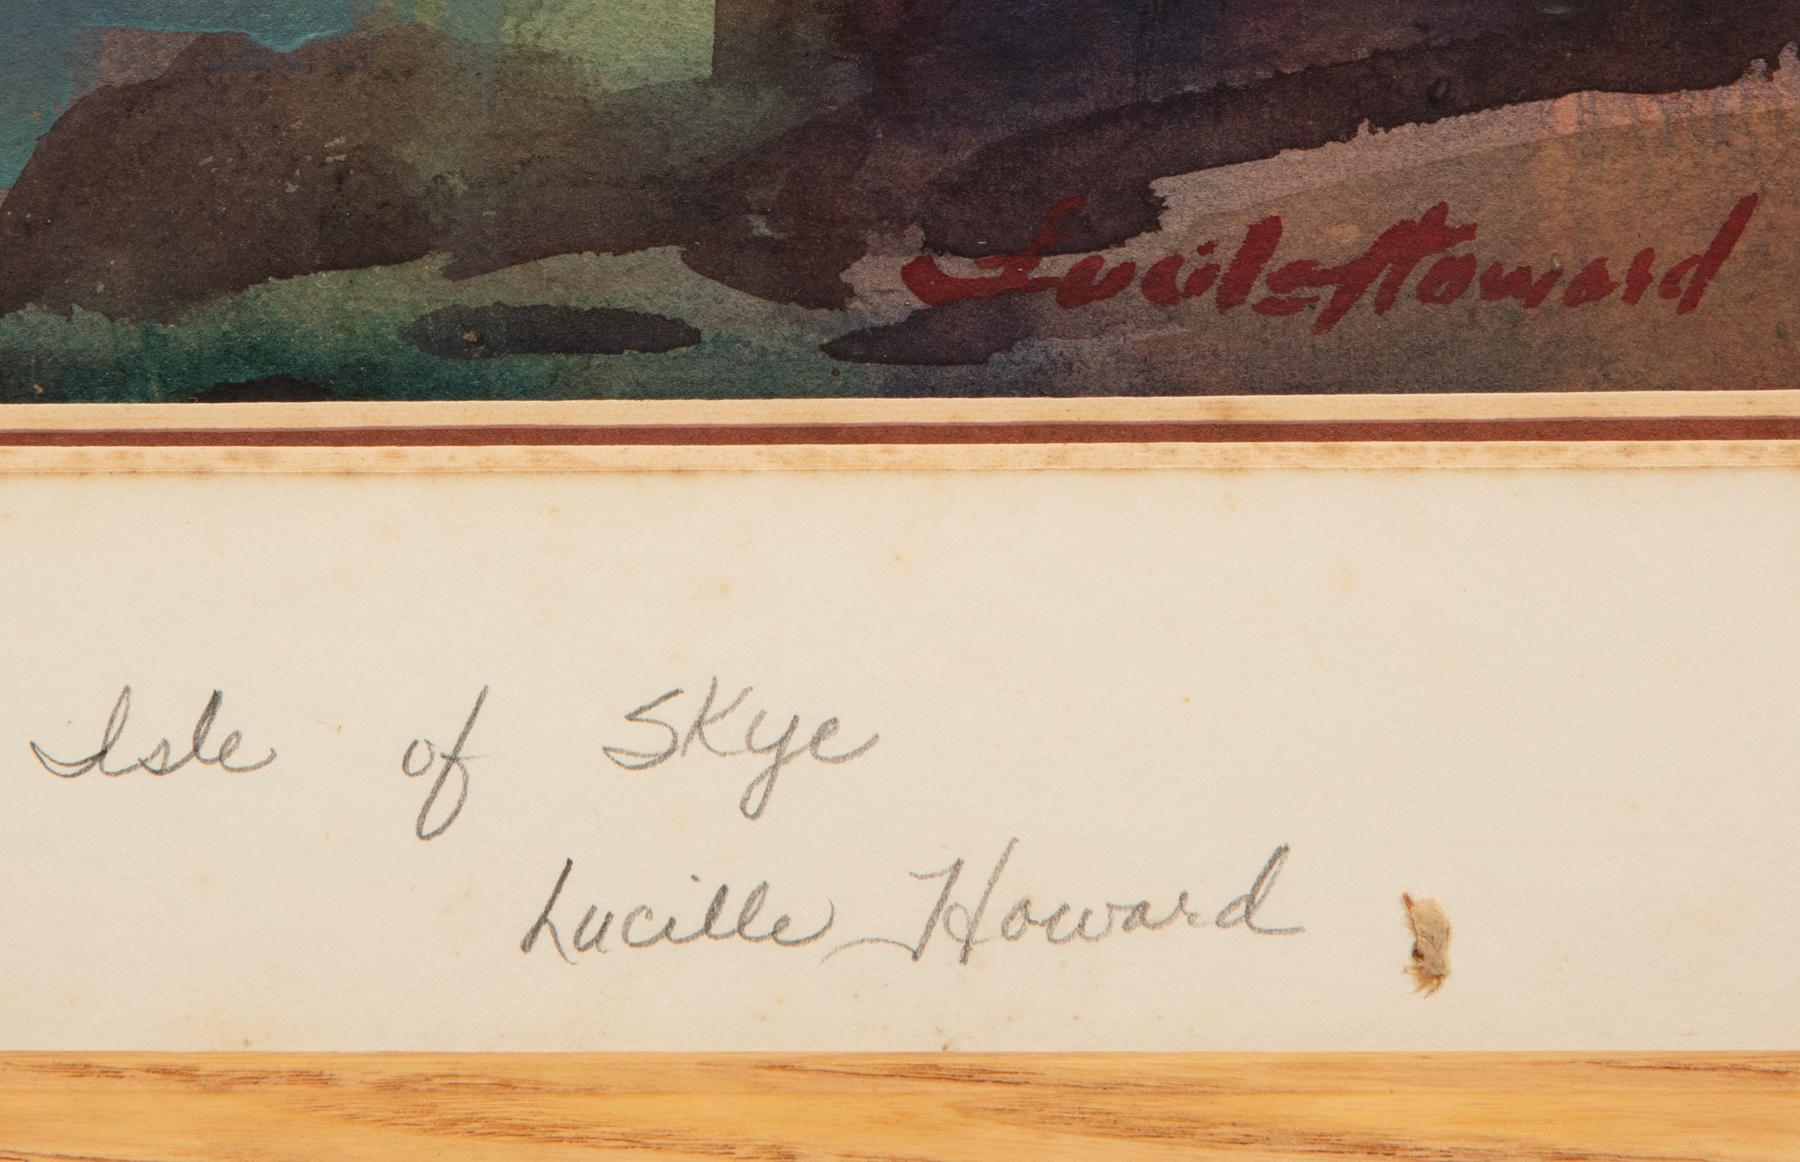 Lucile Howard
Isle of Skye
Lucille Howard